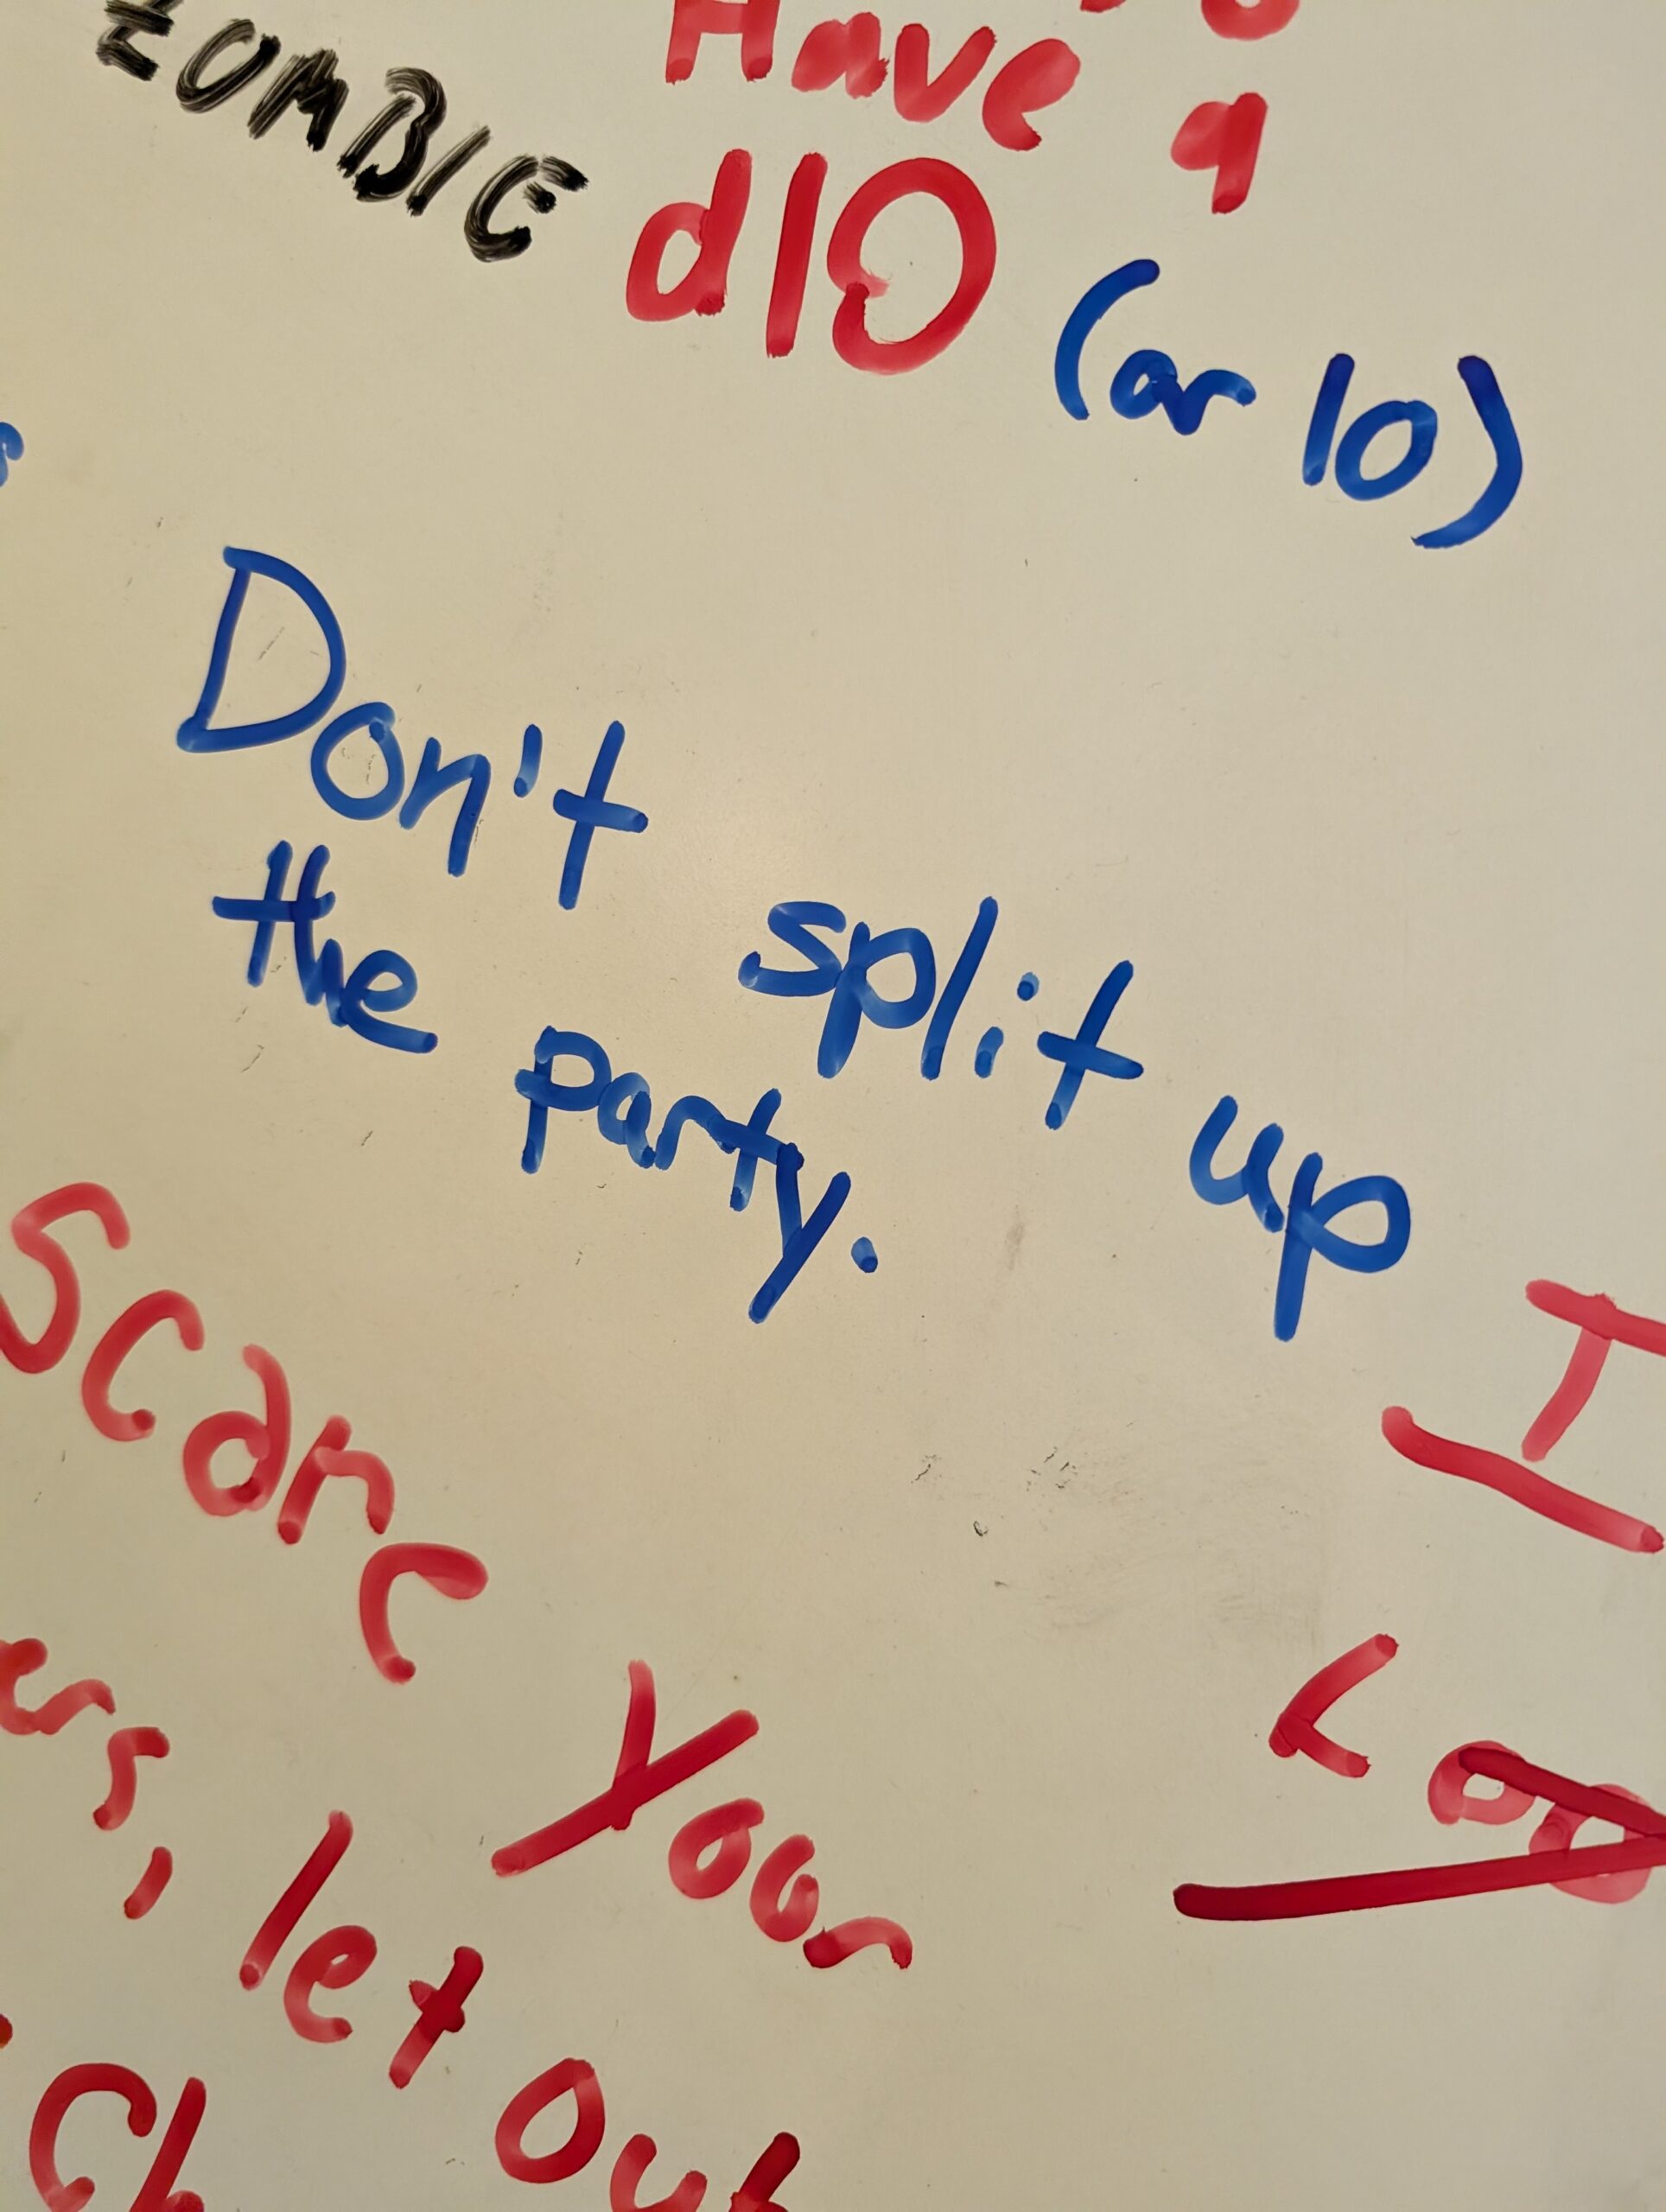 ZOMBIE
Have a
d10 (or 10)
Don't split up
the party.
Scare your
let out
I